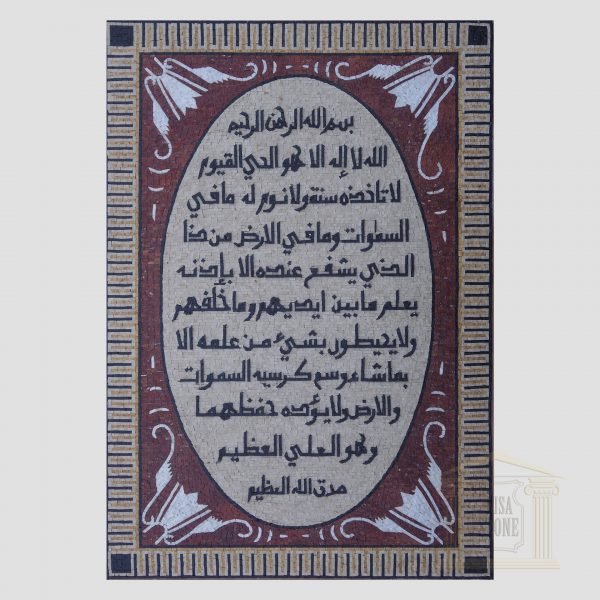 بسم الله الرحمن الرحيم
الله لا إله الا هو الحي القيوم
لا تاخذه سنة ولا نوم له ما في
السموات وما في الارض من ذا
الذي يشفع عنده الا بإذنه
يعلم ما بين ايديهم وما خلفهم
ولا يحيطون بشيء من علمه الا
بما شاء وسع كرسيه السموات
والارض ولا يؤده حفظهما
وهو العلي العظيم
صدق الله العظيم